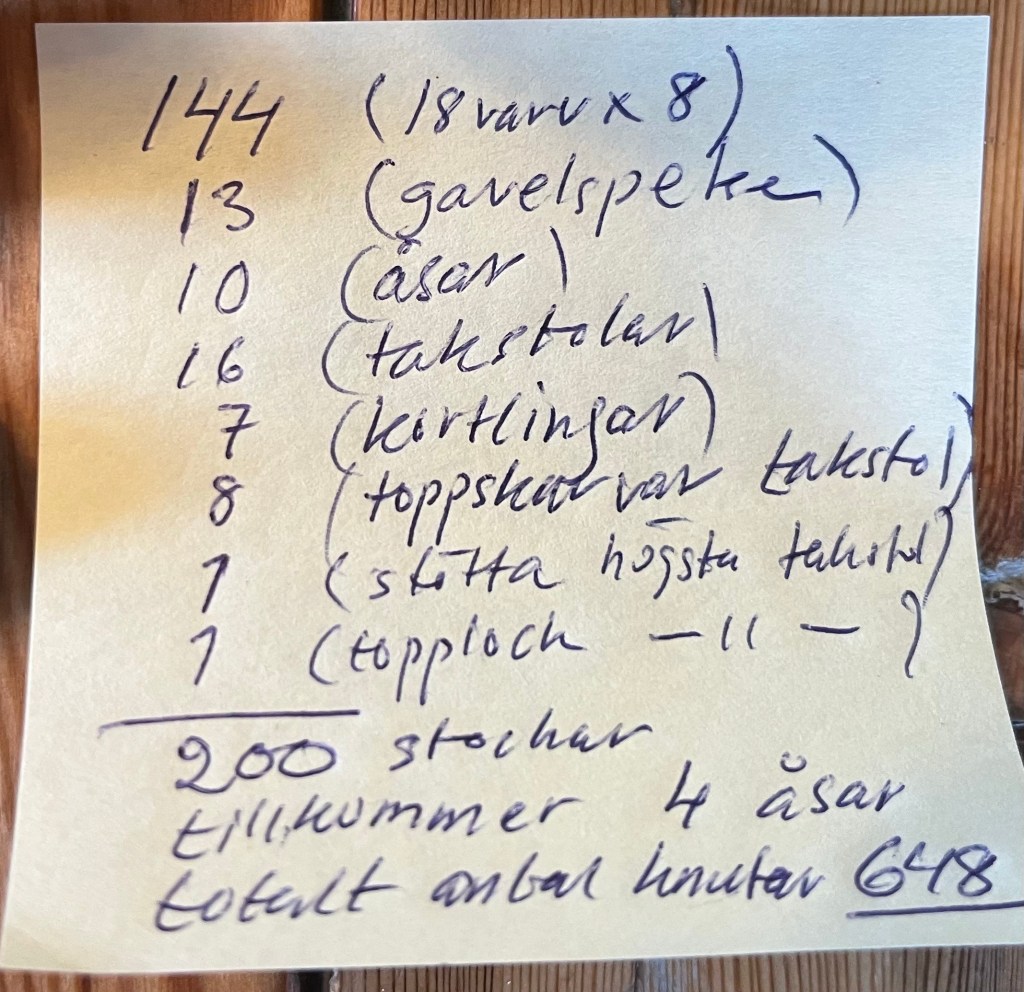 144 (18 varv x 8)
13 (gavelspetsar)
10 (åsar)
16 (takstolar)
7 (kortlingar)
8 (toppskarvar takstol)
1 (stötta högsta takstol)
1 (topplock —11—)
200 stockar
tillkommer 4 åsar
totalt antal knutar 648